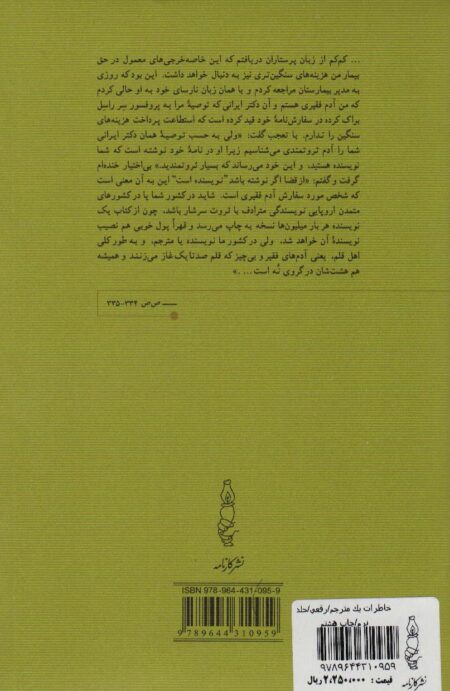 ... کم‌کم از زبان پرستاران دریافتم که این خاصه‌خرجی‌های معمول در حق
بیمار من هزینه‌های سنگین‌تری نیز به دنبال خواهد داشت. این بود که روزی
به مدیر بیمارستان مراجعه کردم و با همان زبان نارسای خود به او حالی کردم
که من آدم فقیری هستم و آن دکتر ایرانی که توصیهٔ مرا به پروفسور سر راسل
براک کرده در سفارش‌نامهٔ خود قید کرده است که استطاعت پرداخت هزینه‌های
سنگین را ندارم. با تعجب گفت: «ولی به حسب توصیهٔ همان دکتر ایرانی
شما را آدم ثروتمندی می‌شناسیم زیرا او در نامهٔ خود نوشته است که شما
نویسنده هستید، و این خود می‌رساند که بسیار ثروتمندید.» بی‌اختیار خنده‌ام
گرفت و گفتم: «از قضا اگر نوشته باشد "نویسنده است" این به آن معنی است
که شخص مورد سفارش آدم فقیری است. شاید در کشور شما یا در کشورهای
متمدن اروپایی نویسندگی مترادف با ثروت سرشار باشد، چون از کتاب یک
نویسنده هر بار میلیون‌ها نسخه به چاپ می‌رسد و قهراً پول خوبی هم نصیب
نویسندهٔ آن خواهد شد، ولی در کشور ما نویسنده یا مترجم، و به طور کلی
اهل قلم، یعنی آدم‌های فقیر و بی‌چیز که قلم صد تا یک غاز می‌زنند و همیشه
هم هشت‌شان در گروی نُه است... .»
ــــ صص ۳۳۴-۳۳۵
نشر کارنامه
ISBN 978-964-431-095-9
9 789644 310959
خاطرات یك مترجم/رقعی/جلد
نرم/چاپ هشتم
۹۷۸۹۶۴۴۳۱۰۹۵۹
قیمت: ۲،۲۵۰،۰۰۰ ریال
نشر کارنامه